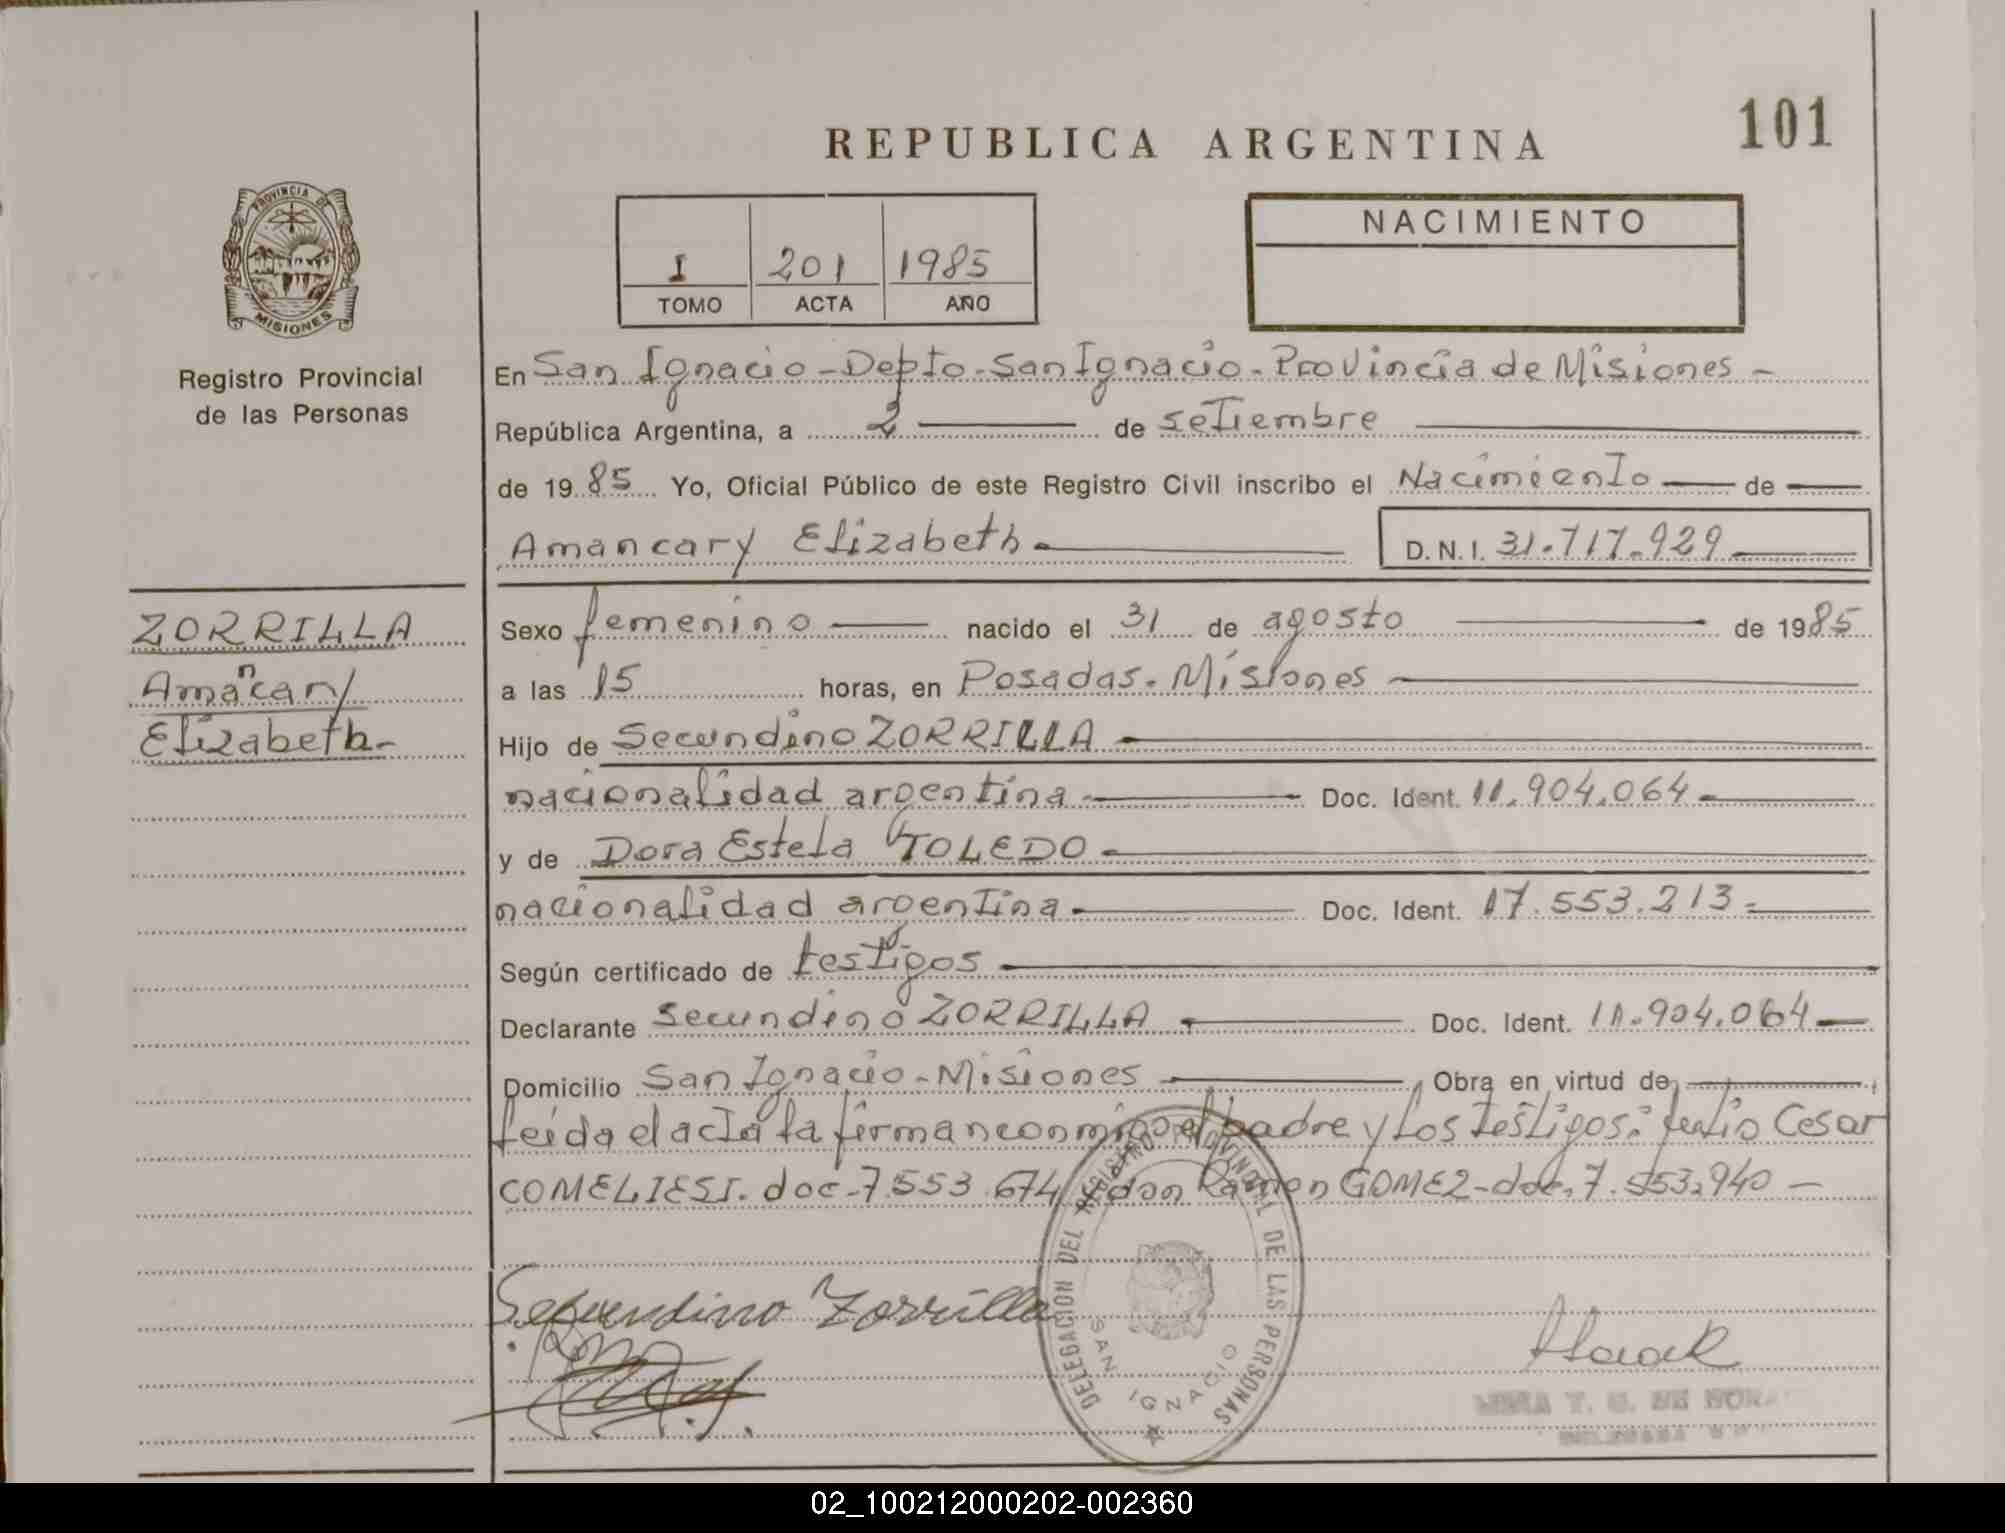 101
REPUBLICA ARGENTINA
PROVINCIA DE
MISIONES
Registro Provincial
de las Personas
I 201 1985
TOMO ACTA AÑO
NACIMIENTO
En San Ignacio - Depto - San Ignacio - Provincia de Misiones -
República Argentina, a 2 de setiembre
de 1985 Yo, Oficial Público de este Registro Civil inscribo el Nacimiento de
Amancary Elizabeth
D.N.I. 31.717.929
ZORRILLA
Amancary
Elizabeth-
Sexo femenino nacido el 31 de agosto de 1985
a las 15 horas, en Posadas - Misiones
Hijo de Secundino ZORRILLA
nacionalidad argentina Doc. Ident. 11.904.064
y de Dora Estela TOLEDO
nacionalidad argentina Doc. Ident. 17.553.213
Según certificado de testigos
Declarante Secundino ZORRILLA Doc. Ident. 11.904.064
Domicilio San Ignacio - Misiones Obra en virtud de
leída el acta la firman conmigo el padre y los testigos: Cesar
COMELIESI. doc. 7.553.674 don Ramon GOMEZ - doc. 7.553.940 -
Secundino Zorrilla
DELEGACION DEL REGISTRO PROVINCIAL DE LAS PERSONAS
SAN IGNACIO
02_100212000202-002360